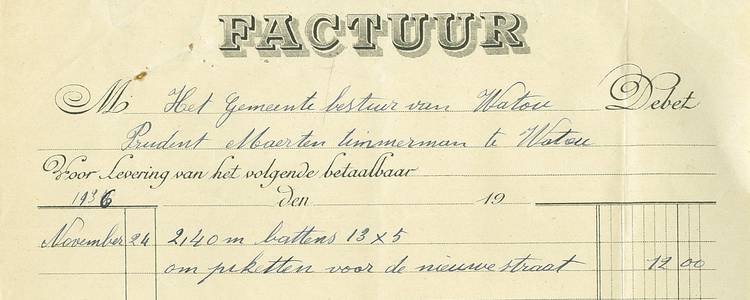 FACTUUR
M Het Gemeente bestuur van Watou Debet
Prudent Maerten timmerman te Watou
Voor Levering van het volgende betaalbaar
1936 den 19
November 24 2,40 m battens 13 x 5
om piketten voor de nieuwe straat 12 00